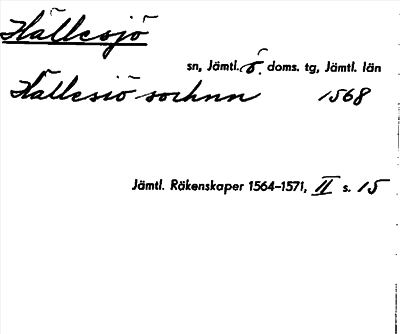 Hällesjö
sn, Jämtl. ö. doms. tg, Jämtl. län
Hällesiö sochnn 1568
Jämtl. Räkenskaper 1564-1571, II s. 15